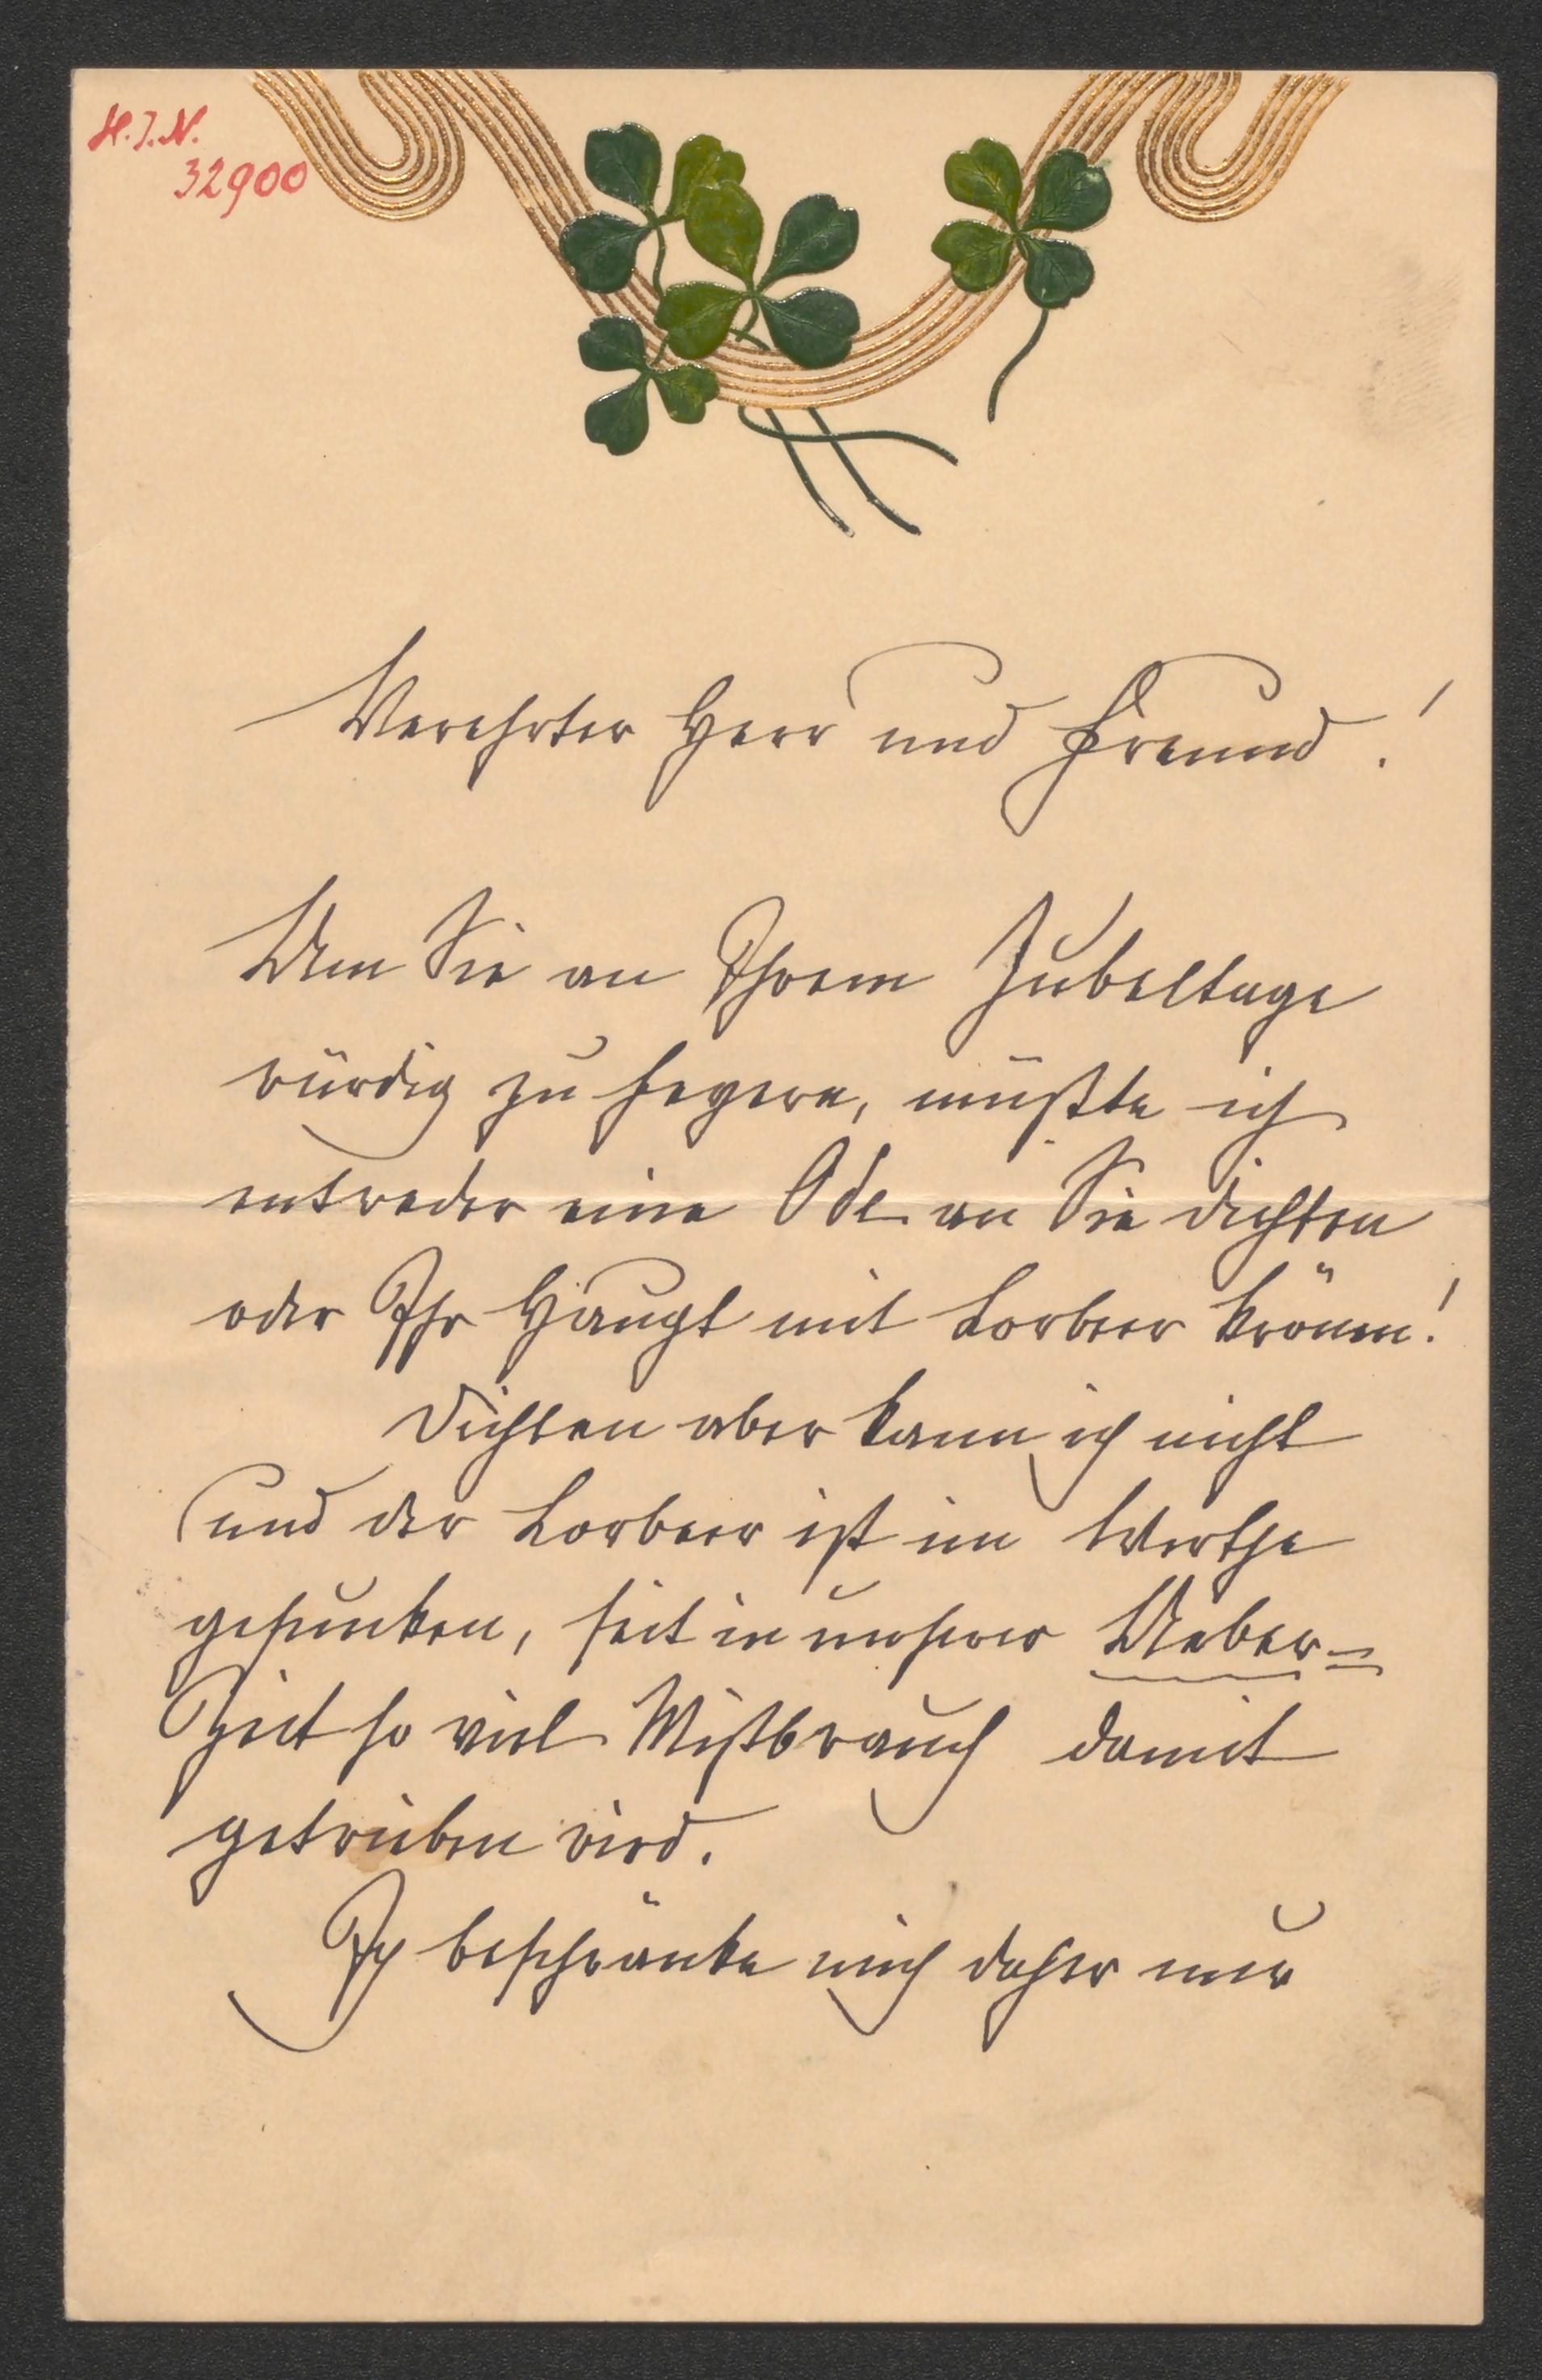 H.I.N.
32900
Verehrter Herr und Freund!
Um Sie an Ihrem Jubeltage
würdig zu feyern, müßte ich
entweder eine Ode an Sie dichten
oder Ihr Haupt mit Lorbeer krönen!
Dichten aber kann ich nicht
und der Lorbeer ist im Werthe
gesunken, seit in unserer Ueber=
Zeit so viel Mißbrauch damit
getrieben wird.
Ich beschränke mich daher nur